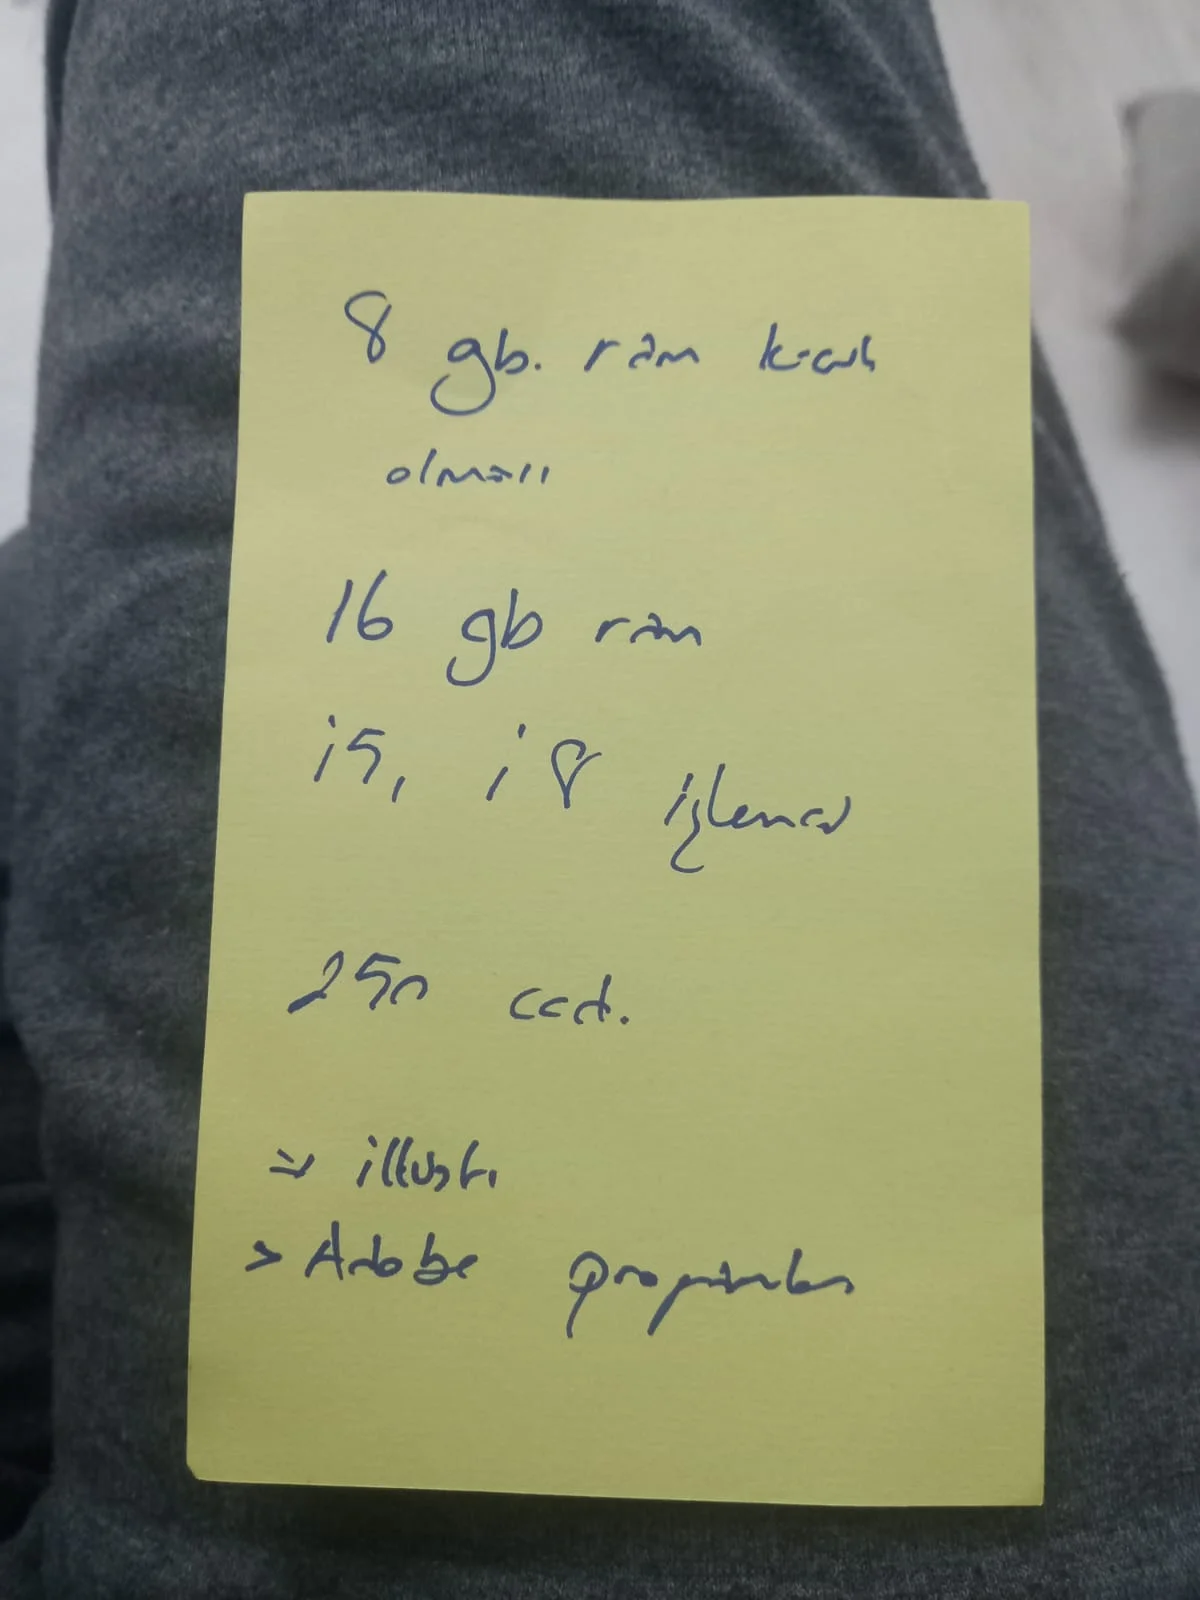 8 gb. ram
olmalı
16 gb ram
i5, i8 işlemci
250
illust.
> Adobe programları